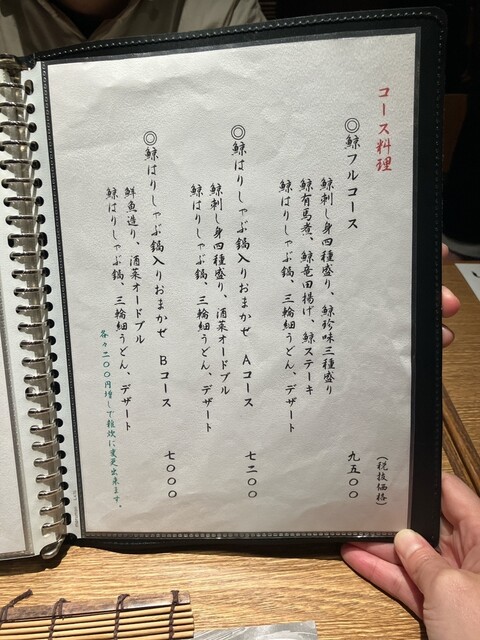 コース料理
(税抜価格)
◎鯨フルコース 九五〇〇
鯨刺し身四種盛り、鯨珍味三種盛り
鯨有馬煮、鯨竜田揚げ、鯨ステーキ
鯨はりしゃぶ鍋、三輪細うどん、デザート
◎鯨はりしゃぶ鍋入りおまかせ Aコース 七二〇〇
鯨刺し身四種盛り、酒菜オードブル
鯨はりしゃぶ鍋、三輪細うどん、デザート
◎鯨はりしゃぶ鍋入りおまかせ Bコース 七〇〇〇
鮮魚造り、酒菜オードブル
鯨はりしゃぶ鍋、三輪細うどん、デザート
各々二〇〇円増しで雑炊に変更出来ます。